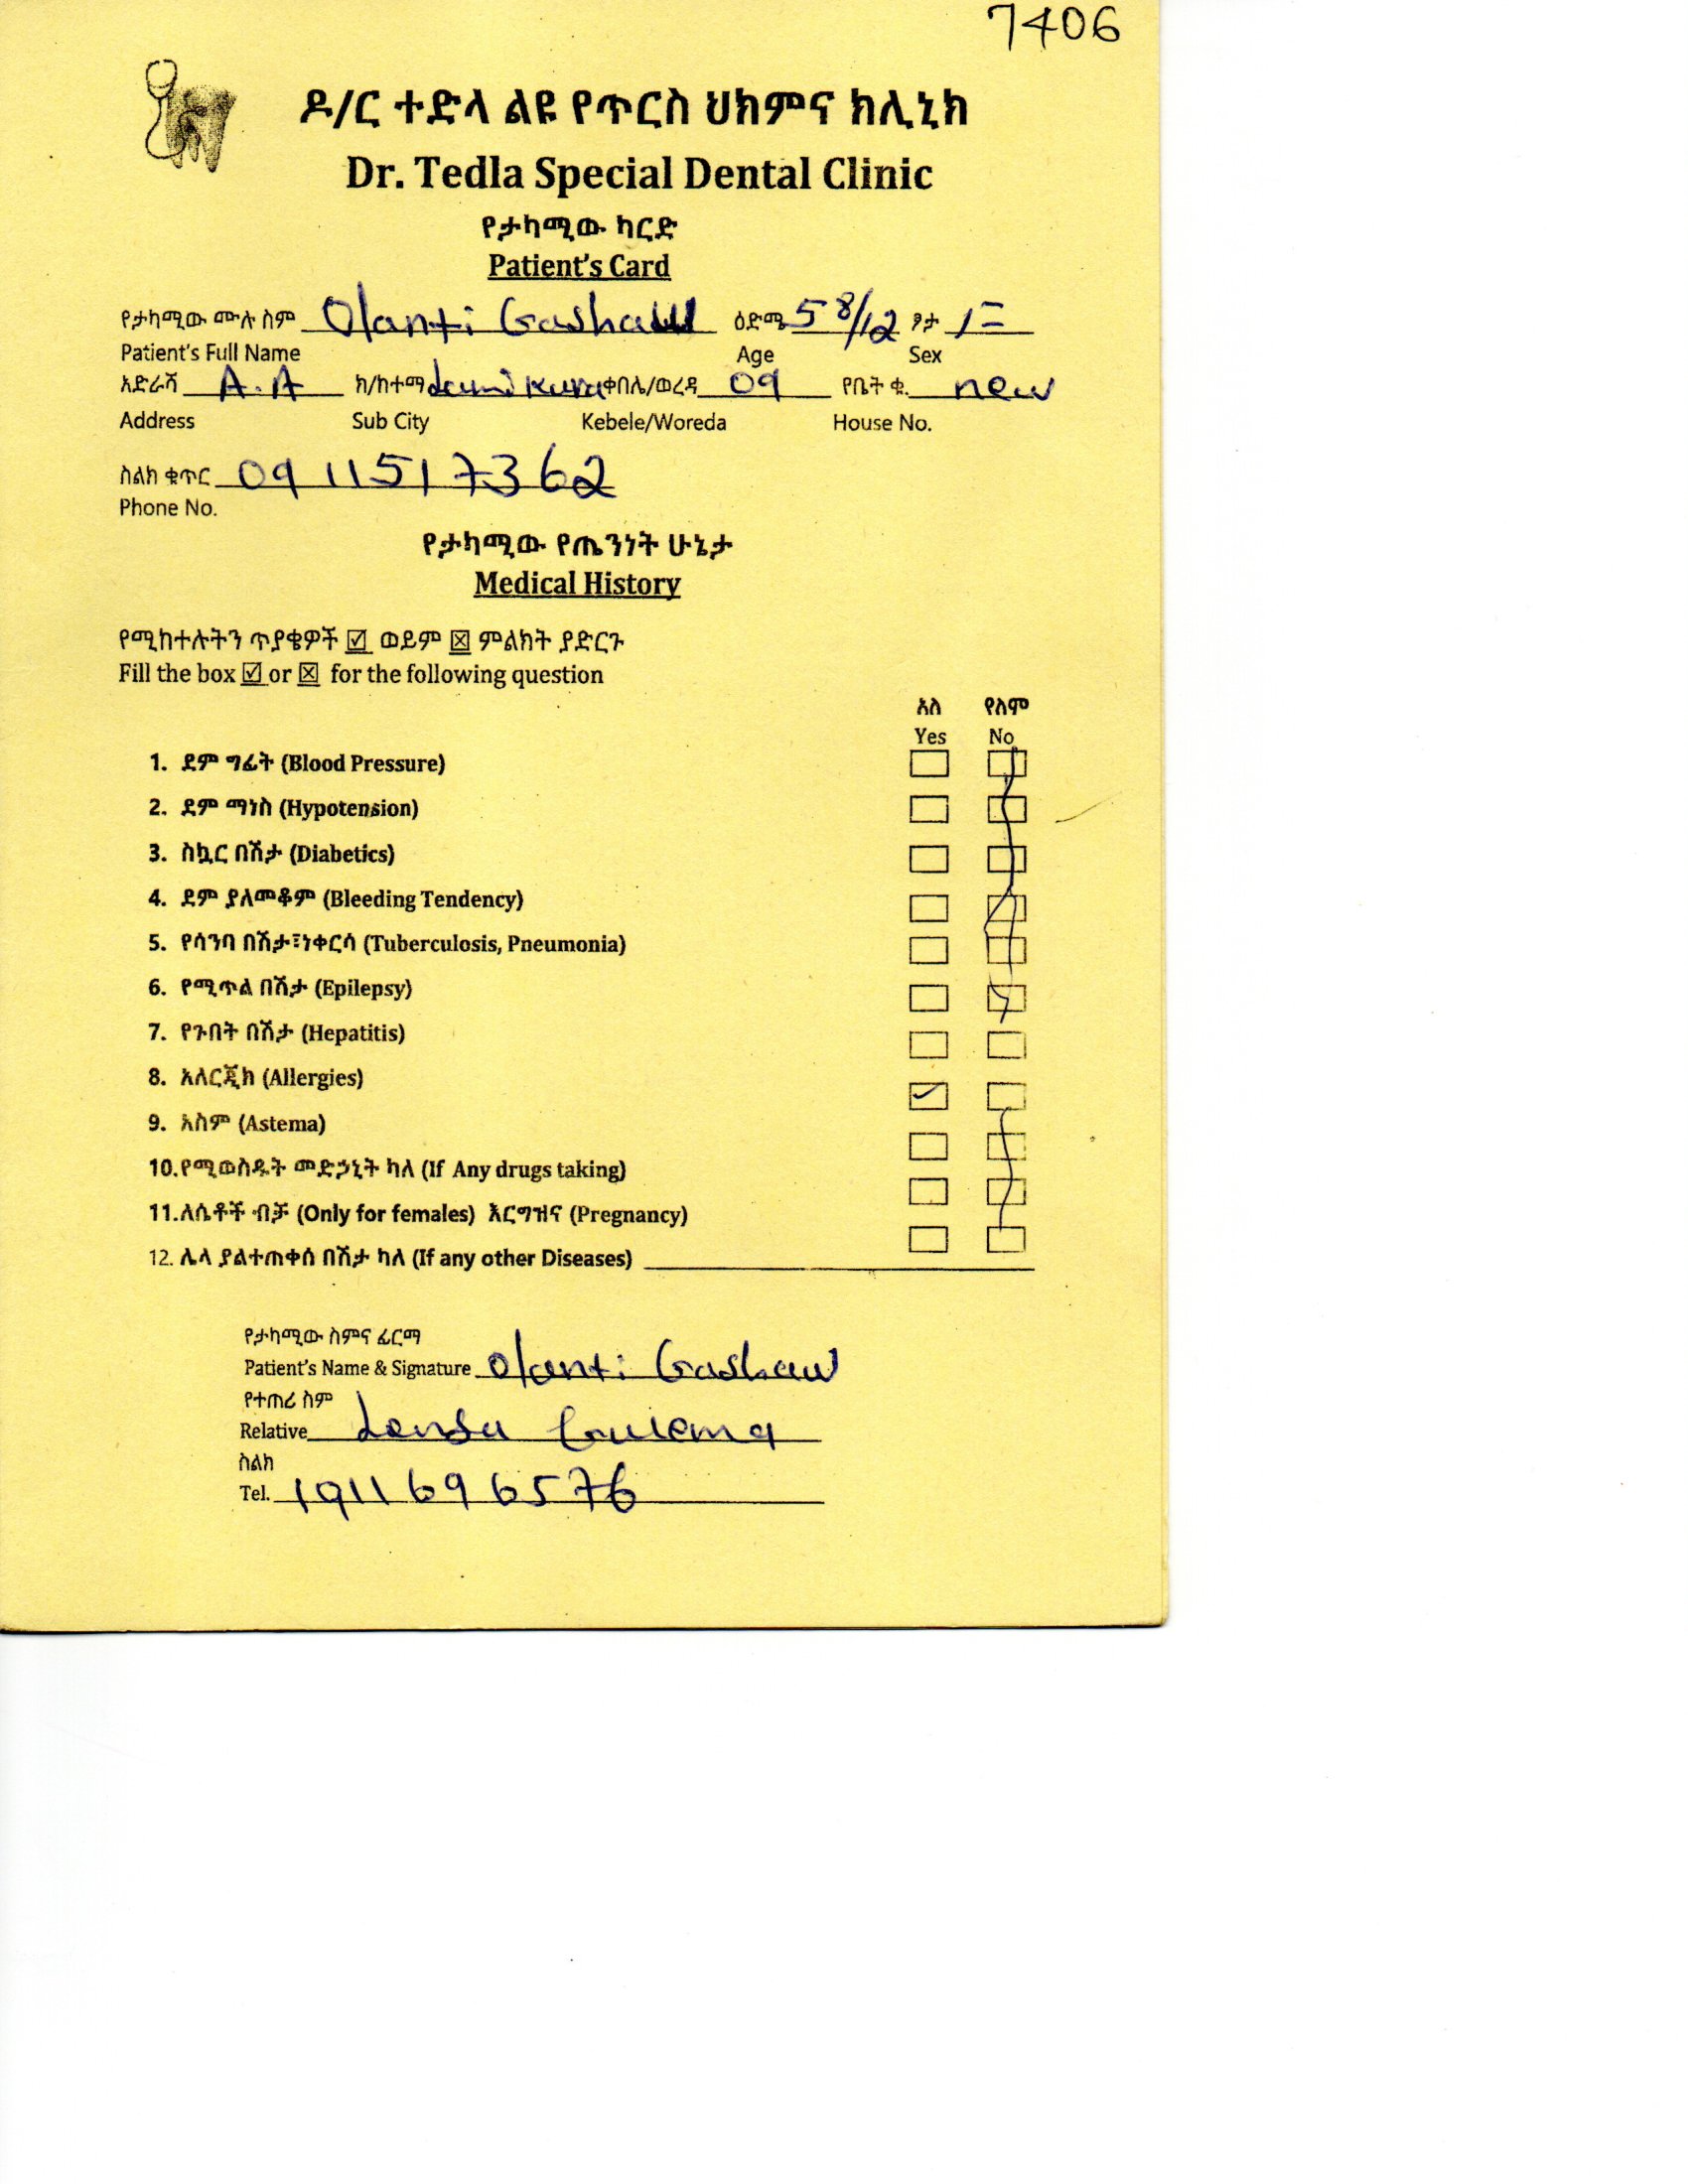 7406
ዶ/ር ተድላ ልዩ የጥርስ ህክምና ክሊኒክ
Dr. Tedla Special Dental Clinic
የታካሚው ካርድ
Patient's Card
የታካሚው ሙሉ ስም Olanti Gashaw ዕድሜ 5 8/12 ፆታ F
Patient's Full Name Age Sex
አድራሻ A.A ክ/ከተማ Lemi Kura ቀበሌ/ወረዳ 09 የቤት ቁ. new
Address Sub City Kebele/Woreda House No.
ስልክ ቁጥር 0911517362
Phone No.
የታካሚው የጤንነት ሁኔታ
Medical History
የሚከተሉትን ጥያቄዎች ☑ ወይም ☒ ምልክት ያድርጉ
Fill the box ☑ or ☒ for the following question
አለ የለም
Yes No
1. ደም ግፊት (Blood Pressure)
2. ደም ማነስ (Hypotension)
3. ስኳር በሽታ (Diabetics)
4. ደም ያለመቆም (Bleeding Tendency)
5. የሳንባ በሽታ፣ነቀርሳ (Tuberculosis, Pneumonia)
6. የሚጥል በሽታ (Epilepsy)
7. የጉበት በሽታ (Hepatitis)
8. አለርጂክ (Allergies) ✓
9. አስም (Astema)
10.የሚወስዱት መድኃኒት ካለ (If Any drugs taking)
11.ለሴቶች ብቻ (Only for females) እርግዝና (Pregnancy)
12. ሌላ ያልተጠቀሰ በሽታ ካለ (If any other Diseases)
የታካሚው ስምና ፊርማ
Patient's Name & Signature Olanti Gashaw
የተጠሪ ስም
Relative Lensa
ስልክ
Tel. 0911696576